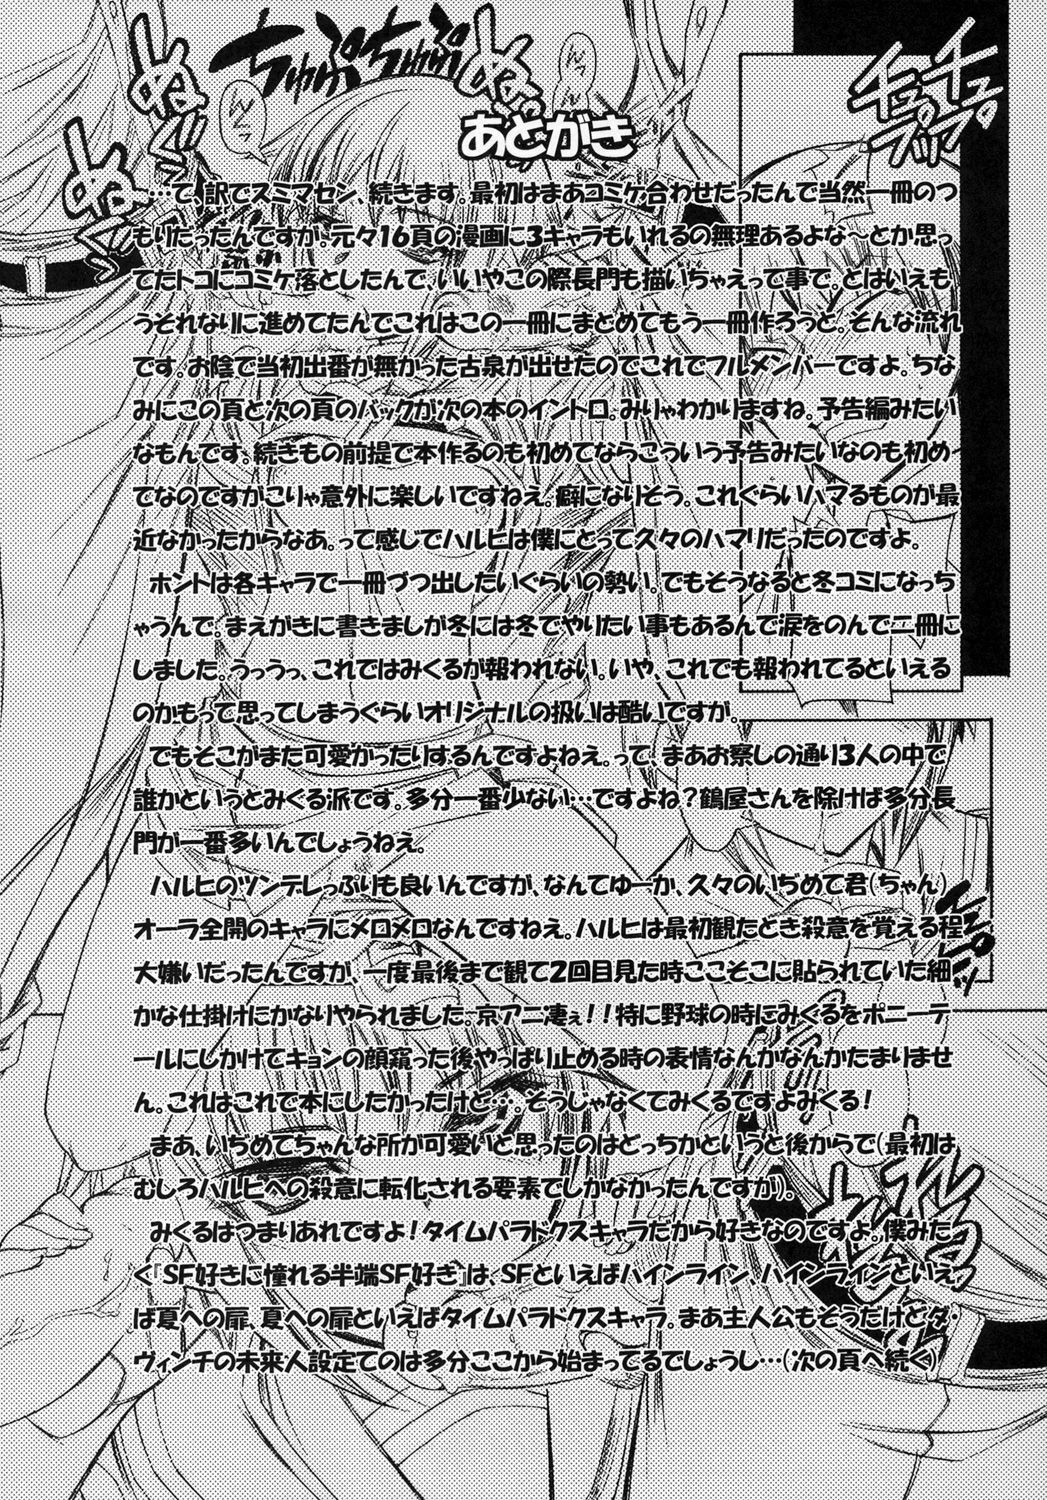 あとがき
…て、訳でスミマセン、続きます。最初はまあコミケ合わせだったんで当然一冊のつ
もりだったんですが。元々16頁の漫画に3キャラもいれるの無理あるよな〜とか思っ
てたトコにコミケ落としたんで、いいやこの際長門も描いちゃえって事で。とはいえも
うそれなりに進めてたんでこれはこの一冊にまとめてもう一冊作ろうと。そんな流れ
です。お陰で当初出番が無かった古泉が出せたのでこれでフルメンバーですよ。ちな
みにこの頁と次の頁のバックが次の本のイントロ。みりゃわかりますね。予告編みたい
なもんです。続きもの前提で本作るのも初めてならこういう予告みたいなのも初め
てなのですがこりゃ意外に楽しいですねえ。癖になりそう。これぐらいハマるものが最
近なかったからなあ。って感じでハルヒは僕にとって久々のハマりだったのですよ。
ホントは各キャラで一冊づつ出したいぐらいの勢い。でもそうなると冬コミになっち
ゃうんで。まえがきに書きましが冬には冬でやりたい事もあるんで涙をのんで二冊に
しました。うっうっ、これではみくるが報われない。いや、これでも報われてるといえる
のかもって思ってしまうぐらいオリジナルの扱いは酷いですが。
でもそこがまた可愛がったりするんですよねえ。って、まあお察しの通り3人の中で
誰かというとみくる派です。多分一番少ない…ですよね？鶴屋さんを除けば多分長
門が一番多いんでしょうねえ。
ハルヒのツンデレっぷりも良いんですが、なんてゆーか、久々のいぢめて君(ちゃん)
オーラ全開のキャラにメロメロなんですねえ。ハルヒは最初観たとき殺意を覚える程
大嫌いだったんですが、一度最後まで観て2回目見た時ここそこに貼られていた細
かな仕掛けにかなりやられました。京アニ凄ぇ！！特に野球の時にみくるをポニーテ
ールにしかけてキョンの顔窺った後やっぱり止める時の表情なんかなんかたまりませ
ん。これはこれで本にしたかったけど…。そうじゃなくてみくるですよみくる！
まあ、いぢめてちゃんな所が可愛いと思ったのはどっちかというと後からで(最初は
むしろハルヒへの殺意に転化される要素でしかなかったんですが)。
みくるはつまりあれですよ！タイムパラドクスキャラだから好きなのですよ。僕みた
く『SF好きに憧れる半端SF好き』は、SFといえばハインライン、ハインラインといえ
ば夏への扉、夏への扉といえばタイムパラドクスキャラ。まあ主人公もそうだけどダ・
ヴィンチの未来人設定てのは多分ここから始まってるでしょうし…(次の頁へ続く)